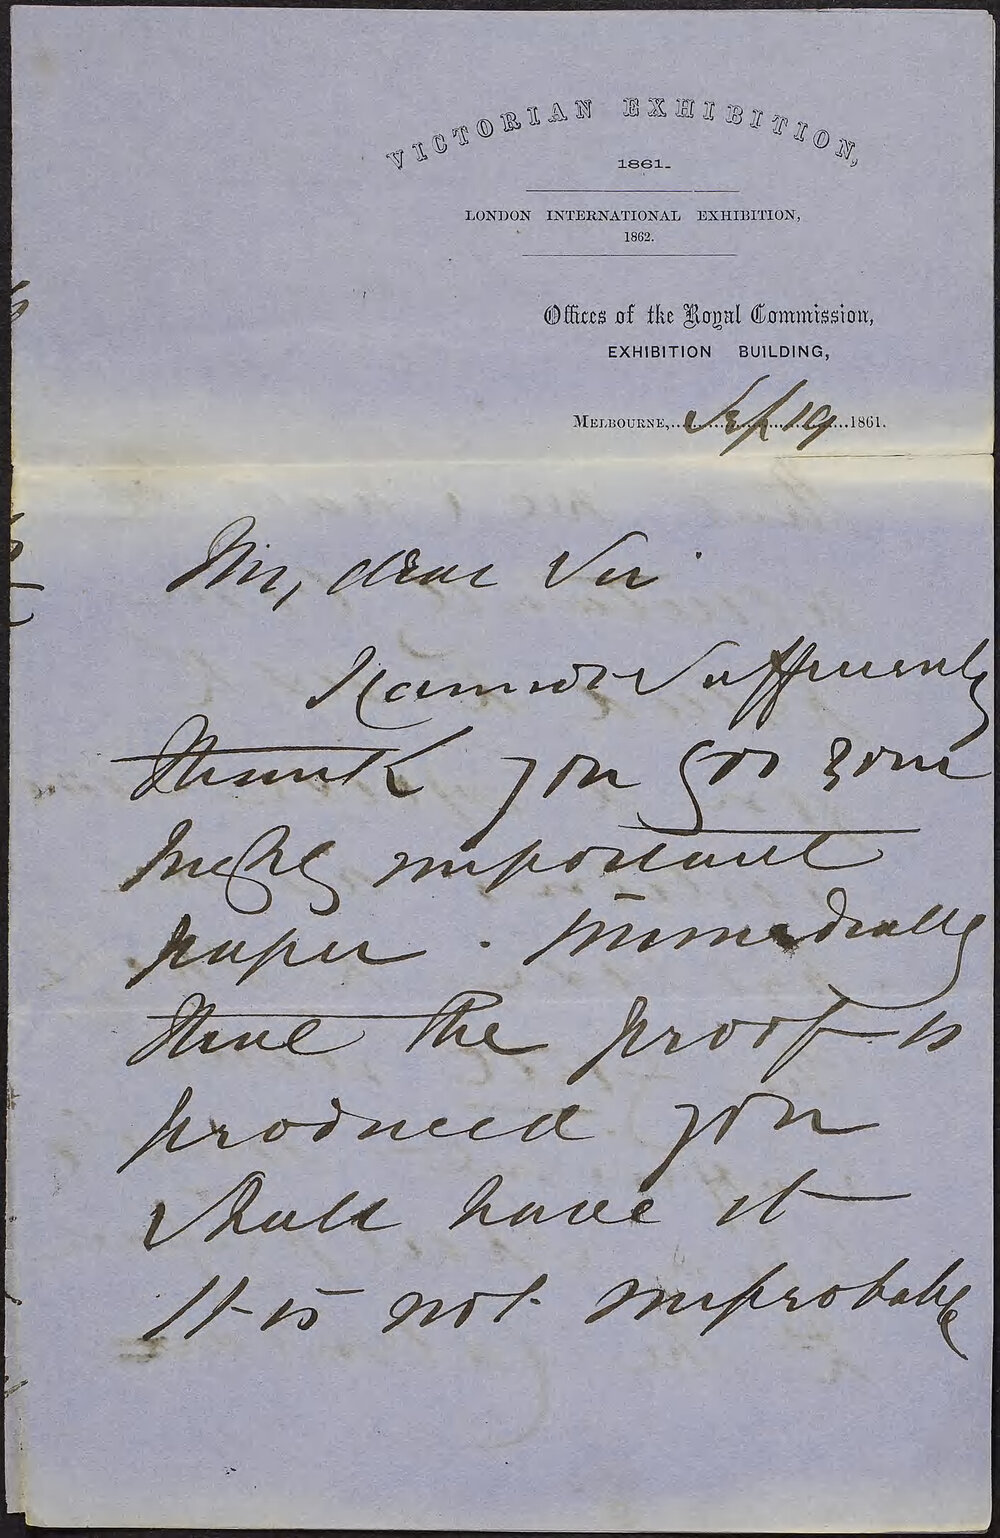 VICTORIAN EXHIBITION,
1861.
LONDON INTERNATIONAL EXHIBITION,
1862.
Offices of the Royal Commission,
EXHIBITION BUILDING,
MELBOURNE, Sep 19 1861.
My dear Sir
I cannot sufficiently
thank you for your
highly important
paper. Immediately
that the proof is
produced you
shall have it
It is not improbable